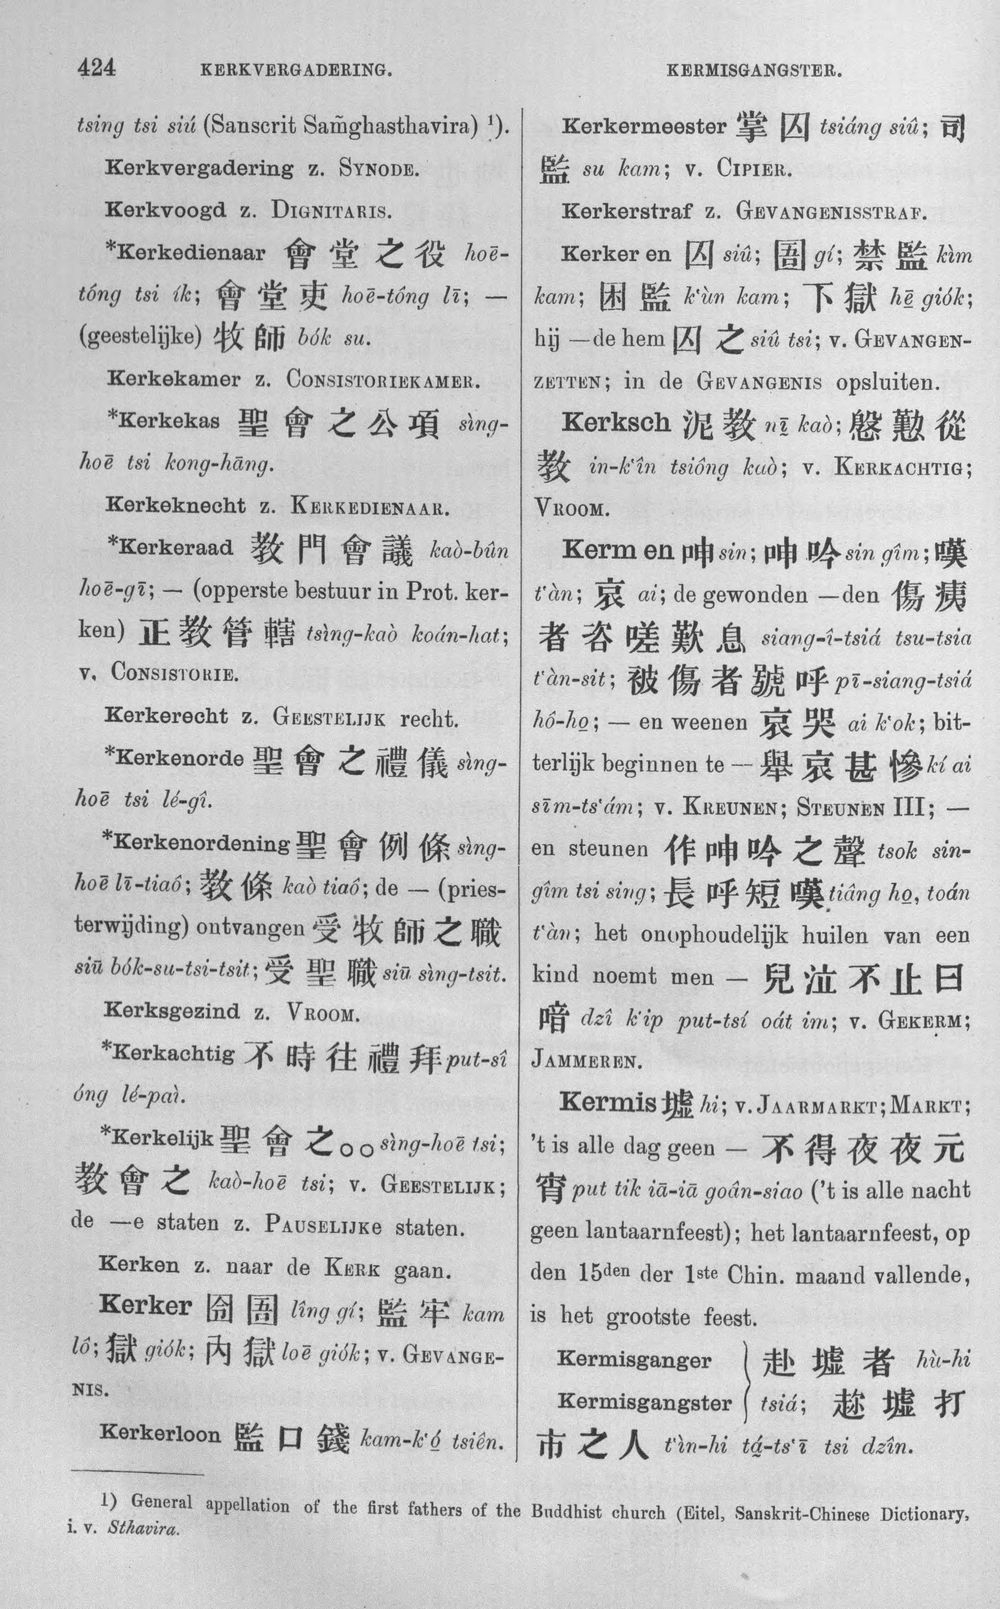 424 KERKVERGADERING. KERMISGANGSTER.
tsing tsi siú (Sanscrit Sam̃ghasthavira) ¹).
Kerkvergadering z. SYNODE.
Kerkvoogd z. DIGNITARIS.
*Kerkedienaar 會堂之役 hoē-
tông tsi ík; 會堂吏 hoē-tông lī; —
(geestelijke) 牧師 bók su.
Kerkekamer z. CONSISTORIEKAMER.
*Kerkekas 聖會之公項 sìng-
hoē tsi kong-hāng.
Kerkeknecht z. KERKEDIENAAR.
*Kerkeraad 教門會議 kaò-bûn
hoē-gī; — (opperste bestuur in Prot. ker-
ken) 正教管轄 tsìng-kaò koán-hat;
v. CONSISTORIE.
Kerkerecht z. GEESTELIJK recht.
*Kerkenorde 聖會之禮儀 sìng-
hoē tsi lé-gî.
*Kerkenordening 聖會例條 sìng-
hoē lī-tiaô; 教條 kaò tiaô; de — (pries-
terwijding) ontvangen 受牧師之職
siū bók-su-tsi-tsit; 受聖職 siū sìng-tsit.
Kerksgezind z. VROOM.
*Kerkachtig 不時往禮拜 put-sî
óng lé-paì.
*Kerkelijk 聖會之○○ sìng-hoē tsi;
教會之 kaò-hoē tsi; v. GEESTELIJK;
de —e staten z. PAUSELIJKe staten.
Kerken z. naar de KERK gaan.
Kerker 囹圄 lîng gí; 監牢 kam
lô; 獄 giók; 內獄 loē giók; v. GEVANGE-
NIS.
Kerkerloon 監口錢 kam-k‘ó̤ tsiên.
Kerkermeester 掌囚 tsiáng siû; 司
監 su kam; v. CIPIER.
Kerkerstraf z. GEVANGENISSTRAF.
Kerkeren 囚 siû; 圄 gí; 禁監 kìm
kam; 困監 k‘ùn kam; 下獄 hē̤ giók;
hij —de hem 囚之 siû tsi; v. GEVANGEN-
ZETTEN; in de GEVANGENIS opsluiten.
Kerksch 泥教 nī̤ kaò; 慇懃從
教 in-k‘în tsiông kaò; v. KERKACHTIG;
VROOM.
Kermen 呻 sin; 呻吟 sin gîm; 嘆
t‘àn; 哀 ai; de gewonden —den 傷痍
者咨嗟歎息 siang-î-tsiá tsu-tsia
t‘àn-sit; 被傷者號呼 pī-siang-tsiá
hô-ho̤; — en weenen 哀哭 ai k‘ok; bit-
terlijk beginnen te — 舉哀甚慘 kí ai
sīm-ts‘ám; v. KREUNEN; STEUNEN III; —
en steunen 作呻吟之聲 tsok sin-
gîm tsi sing; 長呼短嘆 tiâng ho̤, toán
t‘àn; het onophoudelijk huilen van een
kind noemt men — 兒泣不止曰
喑 dzî k‘ip put-tsí oát im; v. GEKERM;
JAMMEREN.
Kermis 墟 hi; v. JAARMARKT; MARKT;
't is alle dag geen — 不得夜夜元
宵 put tik iā-iā goân-siao ('t is alle nacht
geen lantaarnfeest); het lantaarnfeest, op
den 15den der 1ste Chin. maand vallende,
is het grootste feest.
Kermisganger } 赴墟者 hù-hi
Kermisgangster } tsiá; 趁墟打
市之人 t‘ìn-hi tá̤-ts‘ī tsi dzîn.
1) General appellation of the first fathers of the Buddhist church (Eitel, Sanskrit-Chinese Dictionary,
i. v. Sthavira.